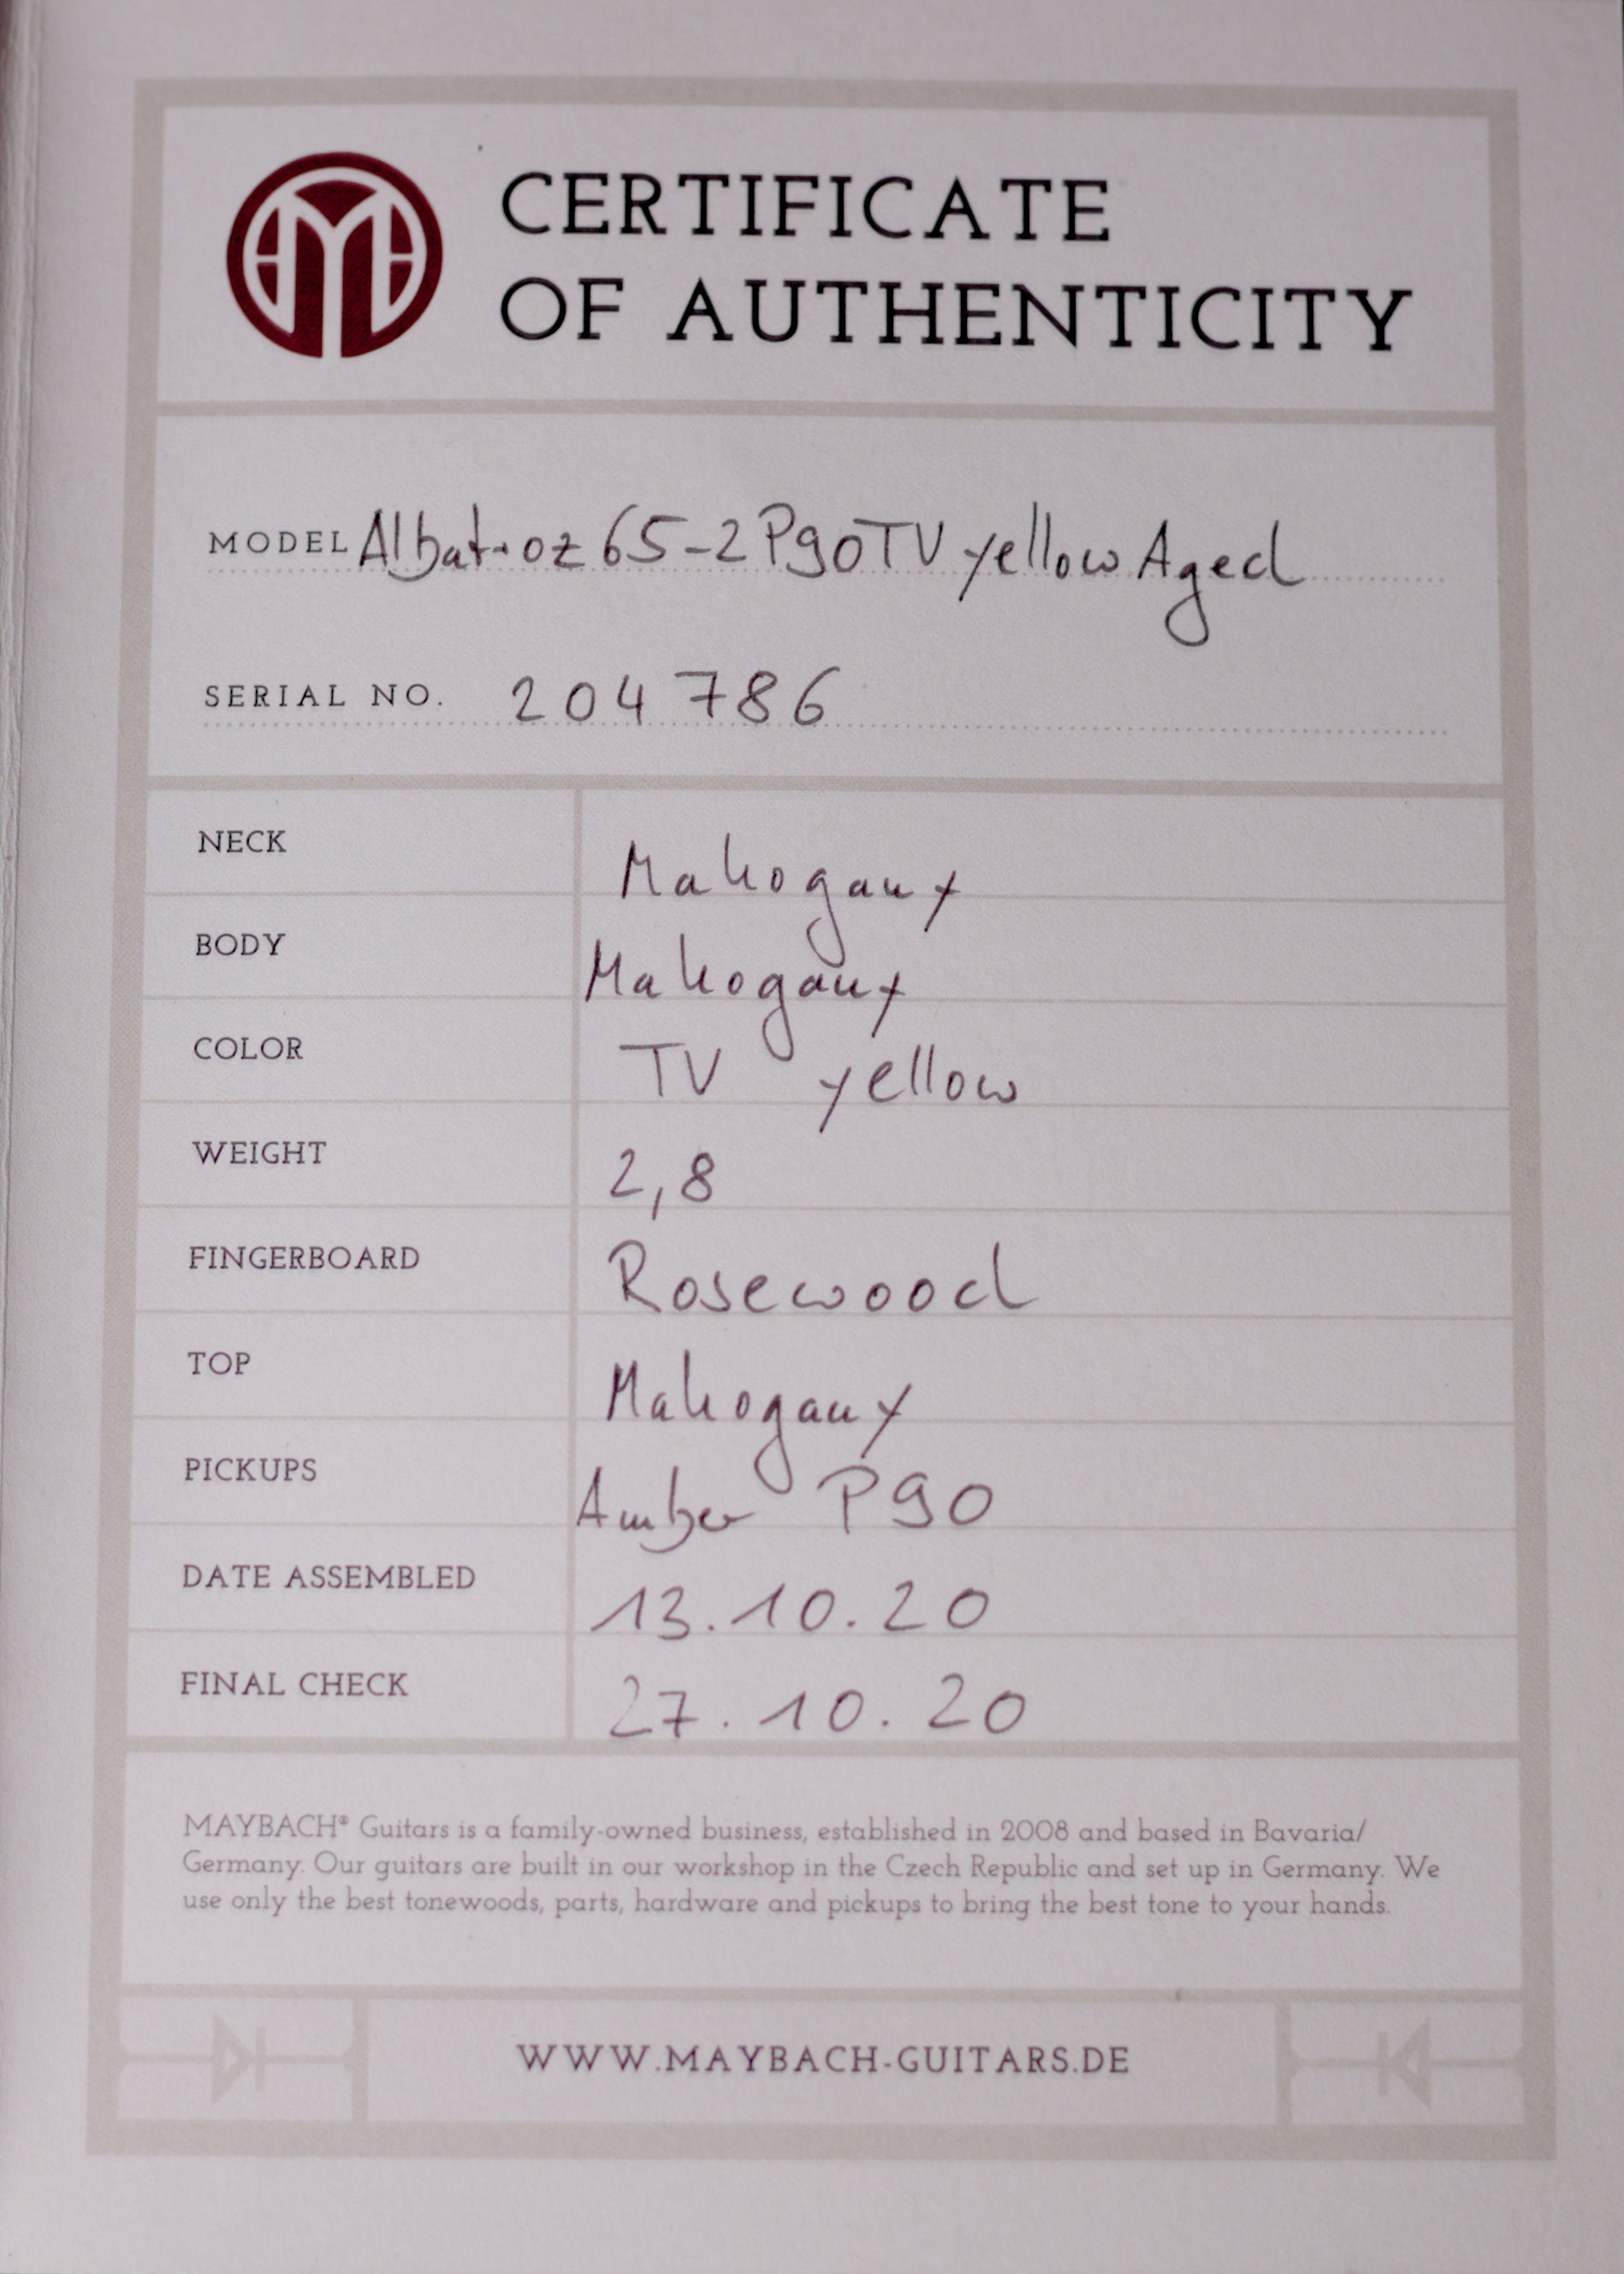 CERTIFICATE
OF AUTHENTICITY
MODEL Albatroz 65-2 P90 TV yellow Aged
SERIAL NO. 204786
NECK Mahogany
BODY Mahogany
COLOR TV yellow
WEIGHT 2,8
FINGERBOARD Rosewood
TOP Mahogany
PICKUPS Amber P90
DATE ASSEMBLED 13.10.20
FINAL CHECK 27.10.20
MAYBACH® Guitars is a family-owned business, established in 2008 and based in Bavaria/
Germany. Our guitars are built in our workshop in the Czech Republic and set up in Germany. We
use only the best tonewoods, parts, hardware and pickups to bring the best tone to your hands.
WWW.MAYBACH-GUITARS.DE